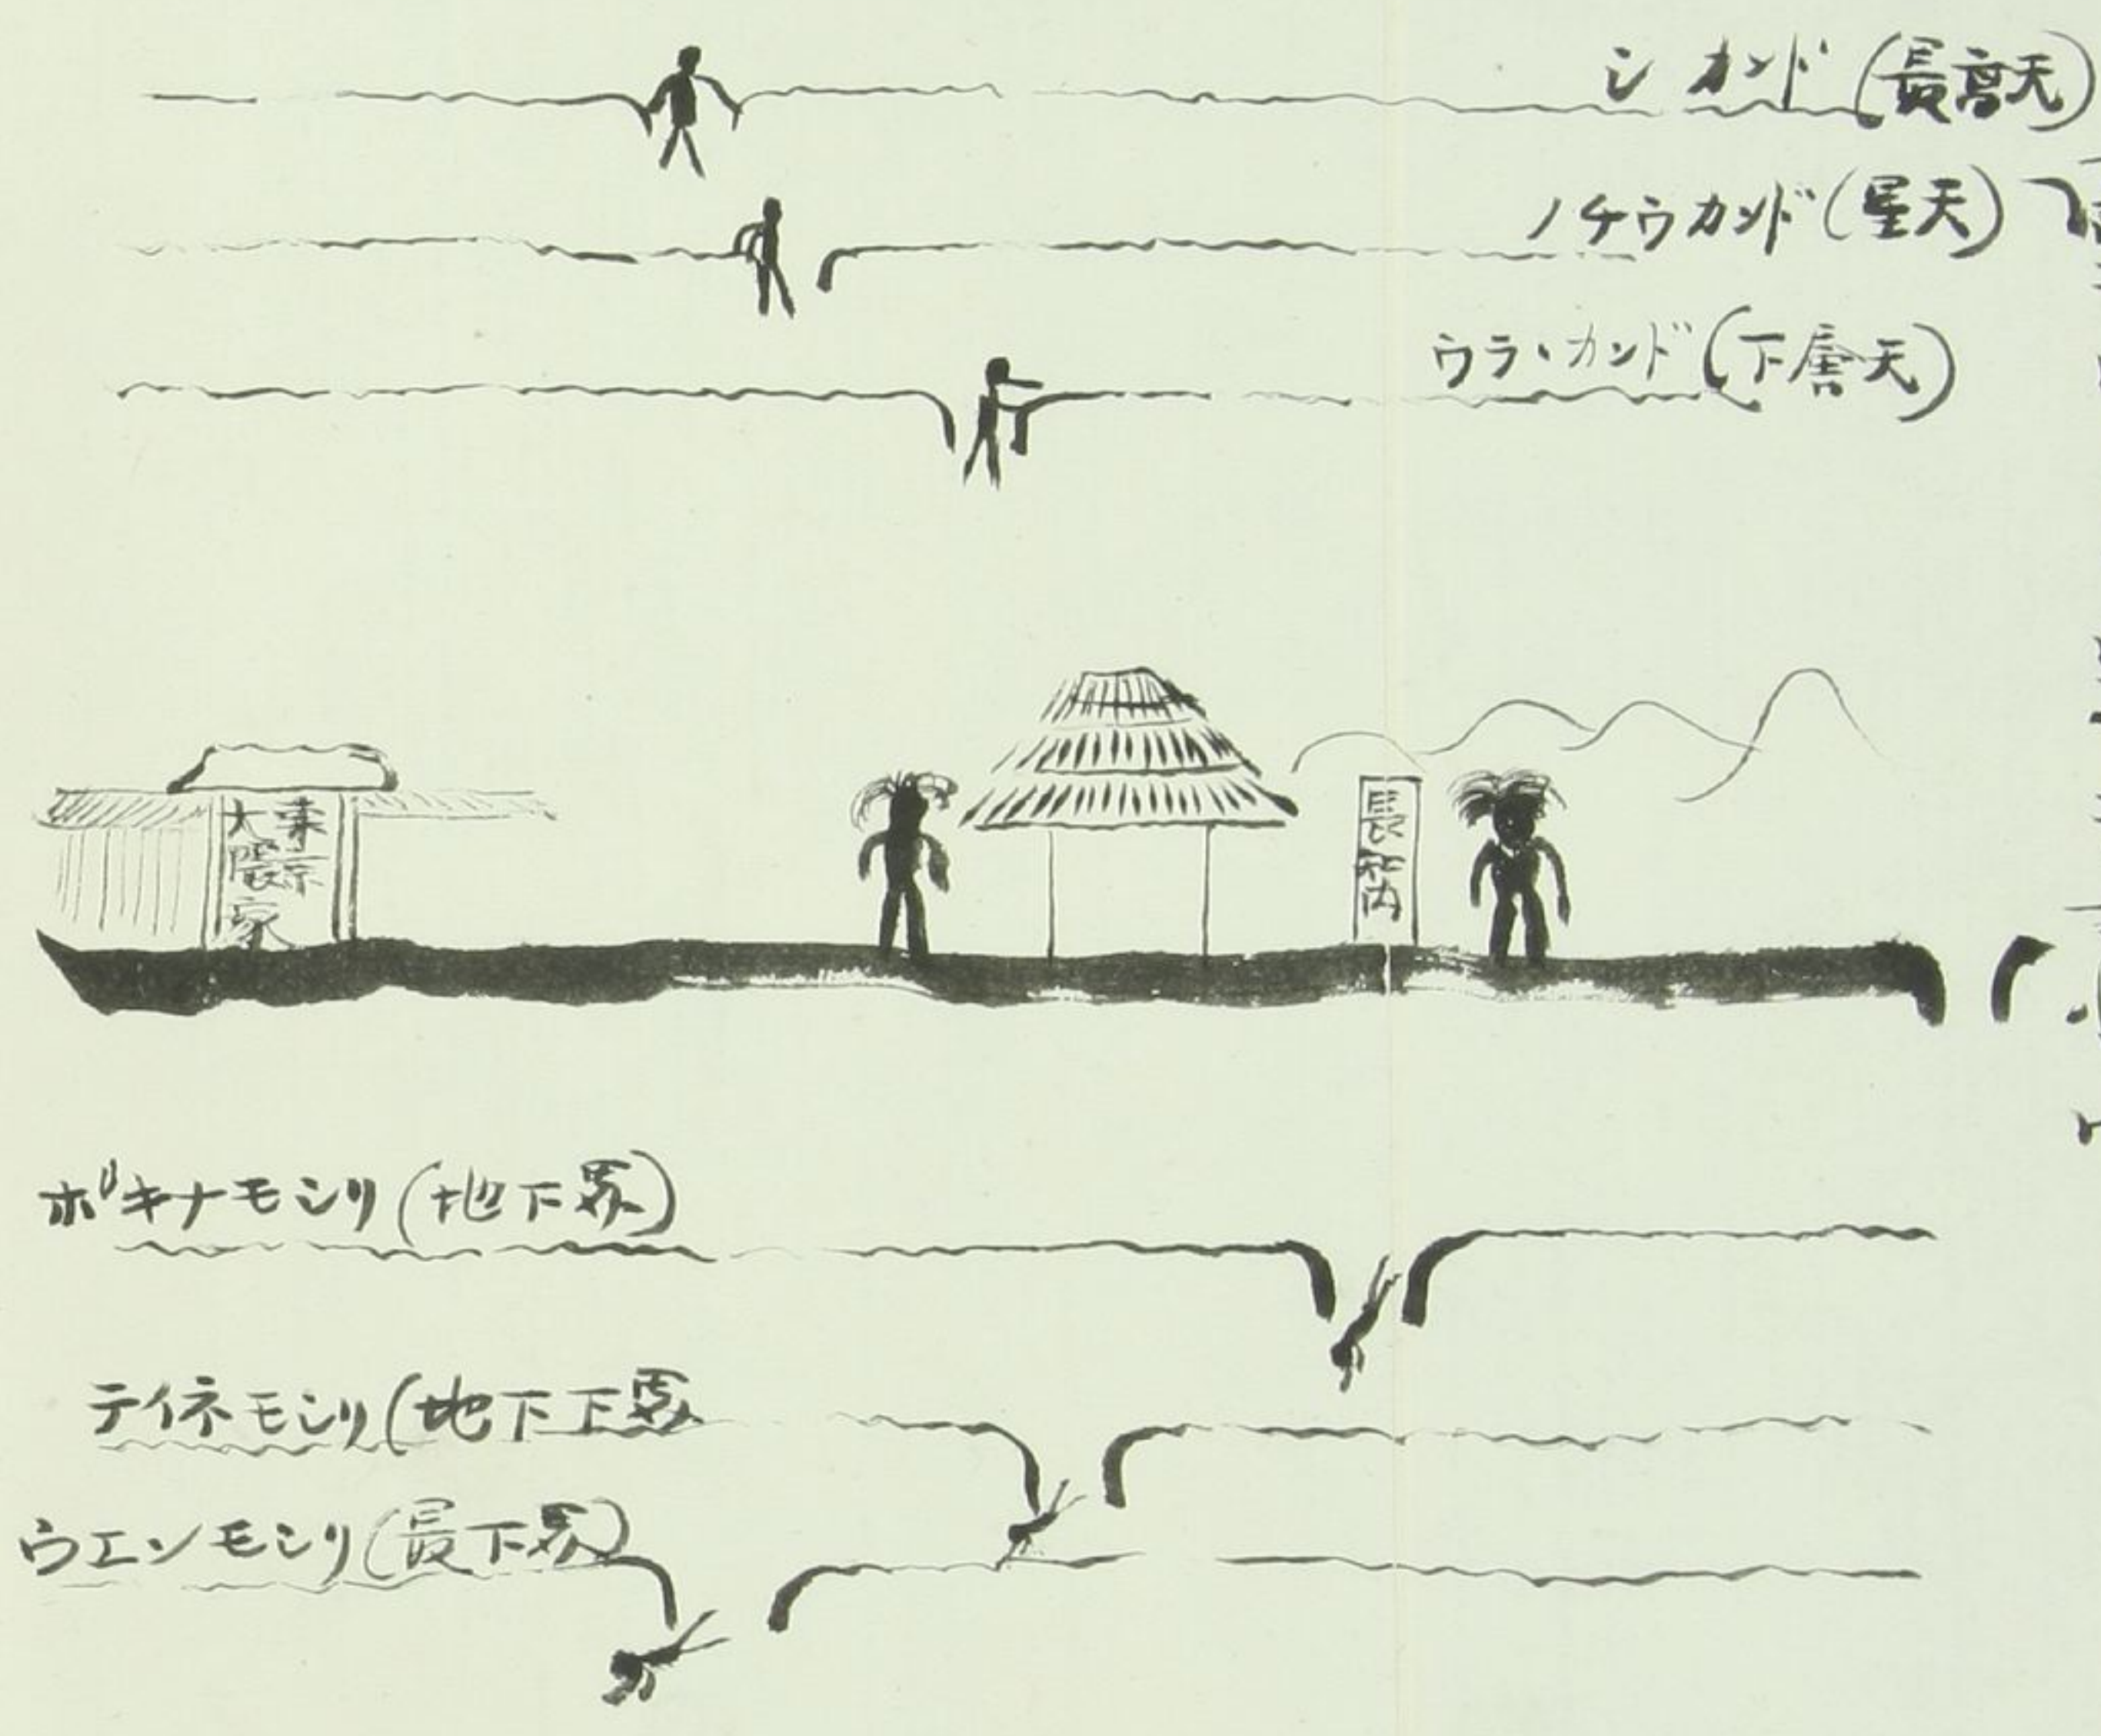 シカンド(最高天)
ノチウカンド(星天)
ウラ・カンド(下層天)
東京
大隈家
長知内
ポキナモシリ(地下界)
テイネモシリ(地下下界
ウエンモシリ(最下界)